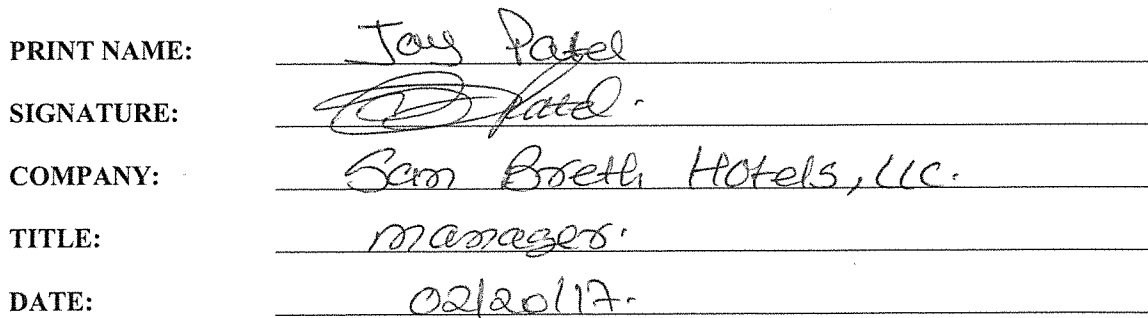 PRINT NAME: Jay Patel
SIGNATURE: Patel.
COMPANY: Sam Breth Hotels, LLC.
TITLE: manager.
DATE: 02/20/17.